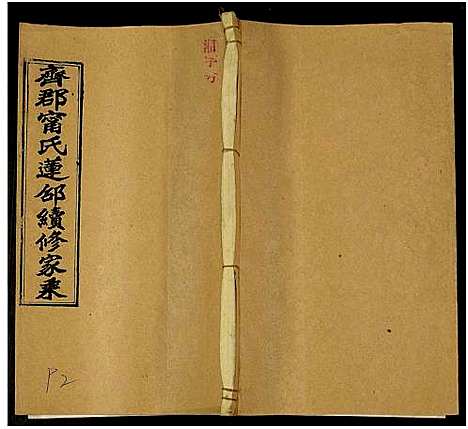 齊郡甯氏蓮邰續修家乘
P2